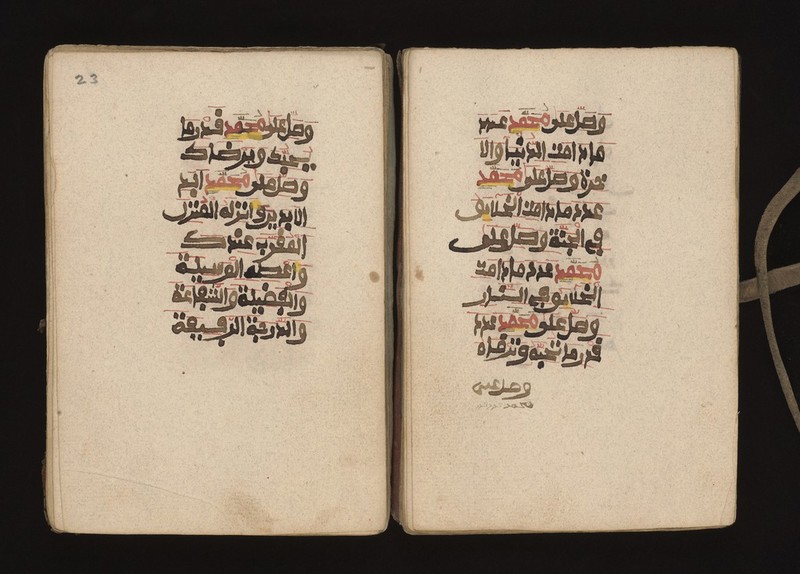 وصل على محمد عدد
ما دامت الدنيا والا
خرة وصل على محمد
عدد ما دامت الخلايق
في الجنة وصل على
محمد عدد ما دامت
الخلايق في النار
وصل على محمد عدد
قدر ما تحبه وترضاه
وصل على
23
وصل على محمد قدر ما
يحبك ويرضاك
وصل على محمد ابد
الابدين وانزله المنزل
المقرب عندك
واعطه الوسيلة
والفضيلة والشفاعة
والدرجة الرفيعة